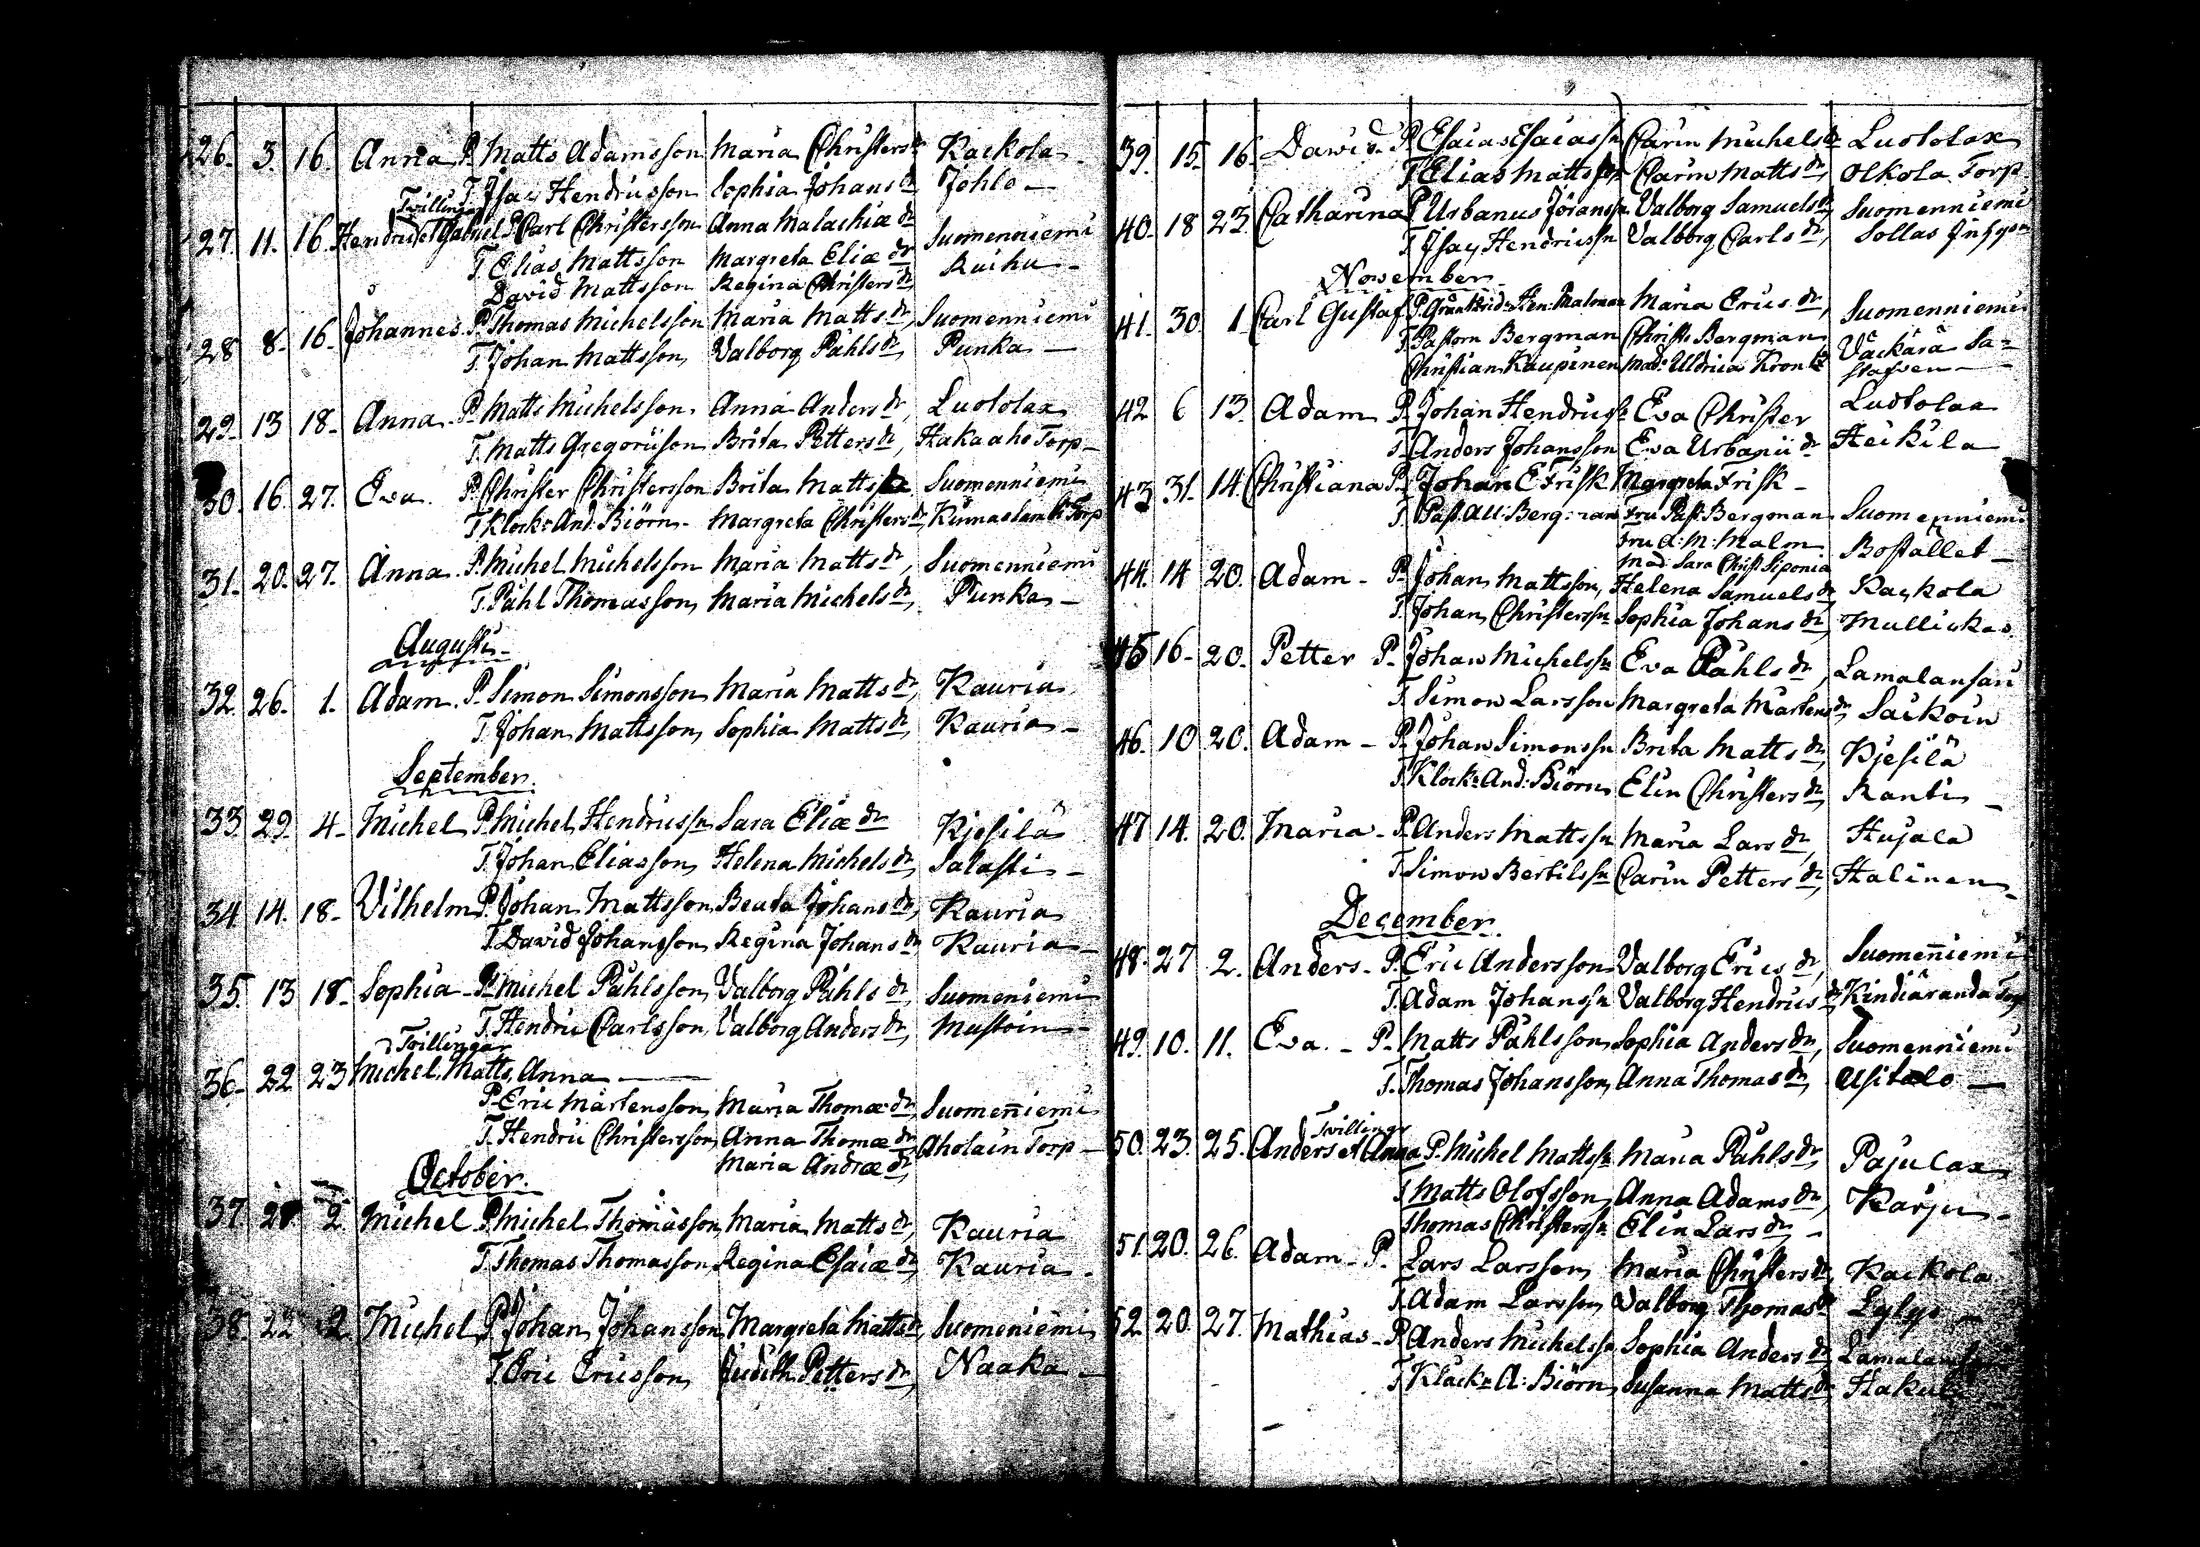 26. 3. 16. Anna P. Matts Adamsson Maria Christersdr Kackola
T. Jsac Hendricsson Sophia Johansdr Johlo
Tvillingar
27. 11. 16. Hendric et Gabriel P. Carl Christersson Anna Malachiædr Suomenniemi
T. Elias Mattsson Margreta Eliædr Kuihu
David Mattsson Regina Christersdr
28. 8. 16. Johannes P. Thomas Michelsson Maria Mattsdr Suomenniemi
T. Johan Mattsson Valborg Påhlsdr Punka
29. 13. 18. Anna P. Matts Michelsson Anna Andersdr Luotolax
T. Matts Gregoriison Brita Pettersdr Hakaaho Torp
30. 16. 27. Eva P. Christer Christersson Brita Mattsdr Suomenniemi
T. Klock: And: Biörn Margreta Christersdr Kinnaslambi Torp
31. 20. 27. Anna P. Michel Michelsson Maria Mattsdr Suomenniemi
T. Påhl Thomasson Maria Michelsdr Punka
Augusti
32. 26. 1. Adam P. Simon Simonsson Maria Mattsdr Kauria
T. Johan Mattsson Sophia Mattsdr Kauria
September
33. 29. 4. Michel P. Michel Hendricssn Sara Eliædr Kjesilä
T. Johan Eliasson Helena Michelsdr Salasti
34. 14. 18. Vilhelm P. Johan Mattsson Beata Johansdr Kauria
T. David Johansson Regina Johansdr Kauria
35. 13. 18. Sophia P. Michel Påhlsson Valborg Påhlsdr Suomeniemi
T. Hendric Carlsson Valborg Andersdr Mustoin
Tvillingar
36. 22. 23. Michel, Matts, Anna
P. Eric Mårtensson Maria Thomædr Suomen̄iemi
T. Hendric Christersson Anna Thomædr Aholain Torp
Maria Andrædr
October
37. 2. Michel P. Michel Thomasson Maria Mattsdr Kauria
T. Thomas Thomasson Regina Esaiædr Kauria
38. 22. 2. Michel P. Johan Johansson Margreta Mattsdr Suomeniemi
T. Eric Ericsson Judith Pettersdr Naaka
39. 15. 16. David P. Esaias Esaiassn Carin Michelsdr Luotolax
T. Elias Mattsson Carin Mattsdr Olkola Torp
40. 18. 23. Catharina P. Urbanus Jöranssn Valborg Samuelsdr Suomenniemi
T. Jsac Hendricssn Valborg Carlsdr Sollas Jnhyses
November
41. 30. 1. Carl Gustaf P. Hen: Malman Maria Ericsdr Suomenniemi
T. Pastorn Bergman Christ: Bergman Väckärä Sa-
Christian Kaupinen Mad: Uldrica Kron
42. 6. 13. Adam P. Johan Hendricssn Eva Christer Luotolax
T. Anders Johansson Eva Urbaniidr Heikilä
43. 31. 14. Christiana P. Johan E Frisk Margreta Frisk
T. Past. All: Bergman Fru Past: Bergman Suomenniemi
Fru A: M: Malm Bostället
Mad. Sara Christ Siponia
44. 14. 20. Adam P. Johan Mattsson Helena Samuelsdr Kackola
T. Johan Christerssn Sophia Johansdr Mullickas
45. 16. 20. Petter P. Johan Michelssn Eva Påhlsdr Lamalansari
T. Simon Larsson Margreta Mårtensdr Säckoin
46. 10. 20. Adam P. Johan Simonssn Brita Mattsdr Kjesilä
T. Klock: And: Biörn Elin Christersdr Ranti
47. 14. 20. Maria P. Anders Mattssn Maria Larsdr Hujala
T. Simon Bertilssn Carin Pettersdr Halinen
December
48. 27. 2. Anders P. Eric Andersson Valborg Ericsdr Suomen̄iemi
T. Adam Johanssn Valborg Hendricsdr Kindiäranda Torp
49. 10. 11. Eva P. Matts Påhlsson Sophia Andersdr Suomenniemi
T. Thomas Johansson Anna Thomasdr Usitalo
Tvillingar
50. 23. 25. Anders et Anna P. Michel Mattssn Maria Påhlsdr Pajulax
T. Matts Olofsson Anna Adamsdr Karju
Thomas Christerssn Elin Larsdr
51. 20. 26. Adam P. Lars Larsson Maria Christersdr Kackola
T. Adam Larsson Valborg Thomasdr Lyly
52. 20. 27. Mathias P. Anders Michelssn Sophia Andersdr
T. Klock: A: Biörn Susanna Mattsdr